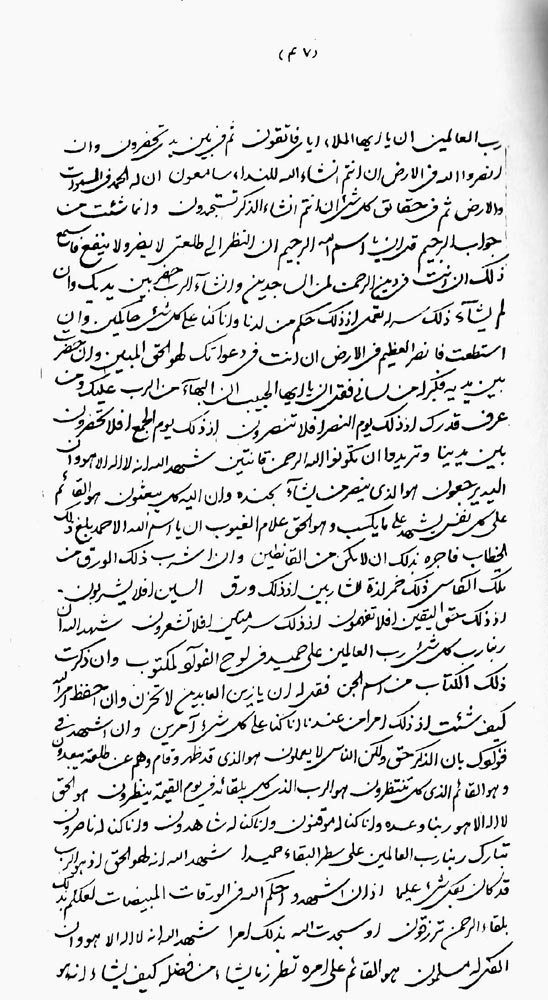 (٤٧)
رب العالمین ان یا ایها الملاء ایای فاتقون ثم فی بین یدی تحضرون وان
انصروا الله فی الارض ان انتم انشاء الله للنداء سامعون ان له الحمد فی السموات
والارض ثم فی حقائق کل شئ ان انتم انشاء الذکر تستجدون وانما شئت من
جواب الرجیم قد ان یا اسم الله الرحیم ان النظر الی طلعتی لا یضر ولا ینفع فاسمع
ذلک ان انت فی دین الرحمن لمن الساجدین وانشاء الرب حضر بین یدیک وان
لم یشاء ذلک سر له تعمی اذ ذلک حکم من لدنا وانا کنا علی کل شئ حاکمین وان
استطعت فانصر العظیم فی الارض ان انت فی دعواتک لهو الحق المبین وان حضر
بین یدیه فکبر من لسانی فقد ان یا ایها الحبیب ان البهاء من الرب علیک ومن
عرف قدرک اذ ذلک یوم النصر افلا تنصرون اذ ذلک یوم الجمع افلا تحضرون
بین یدینا وتریدوا ان تکونوا لله الرحمن قانتین شهد الله انه لا اله الا هو وان
الیه یرجعون هو الذی ینصر من یشاء بجنده وان الیه کل یبعثون هو القائم
علی کل نفس یشهد علی ما یکسب وهو الحق علام الغیوب ان یا اسم الله الاحمد بلغ ذلک
الخطاب فاجره بذلک ان لا یکن من القانطین وان اشرب ذلک الورق من
تلک الکاس ذلک خمر لذة للشاربین اذ ذلک ورق السین افلا یشربون
اذ ذلک حق الیقین افلا تفهمون اذ ذلک سر مبین افلا تشعرون شهد الله ان
ربنا رب کل شئ رب العالمین علی حمید فی لوح الفؤاد لمکتوب وان ذکرت
ذلک الکتاب من اسم الجن فقل له ان یا زین العابدین لا تحزن وان احفظ امر الله
کیف شئت اذ ذلک امرا من عندنا انا کنا علی کل شئ آمرین وان اشهد فی
فؤادک بان الذکر حق ولکن الناس لا یعلمون هو الذی قد ظهر وقام وهم عن طلعته یبعدون
وهو القائم الذی کل تنتظرون هو الرب الذی کل بلقائه فی یوم القیمة ینظرون هو الحق
لا اله الا هو ربنا وعده وانا کنا له موقنون وانا کنا له شاهدون وانا کنا له ناصرون
تبارک ربنا رب العالمین علی سطر البقاء حمیدا شهد الله انه لهو الحق اذ هو الرب
قد کان بکل شئ علیما اذ ان اشهد واحکم الله فی الورقات المبیضات لعلکم بذلک
بلقاء الرحمن ترزقون او سجدت الله بذلک امرا شهد الله انه لا اله الا هو وان
الکل له مسلمون هو القائم علی امره تطرز ما یشاء من فضله کیف یشاء انه هو